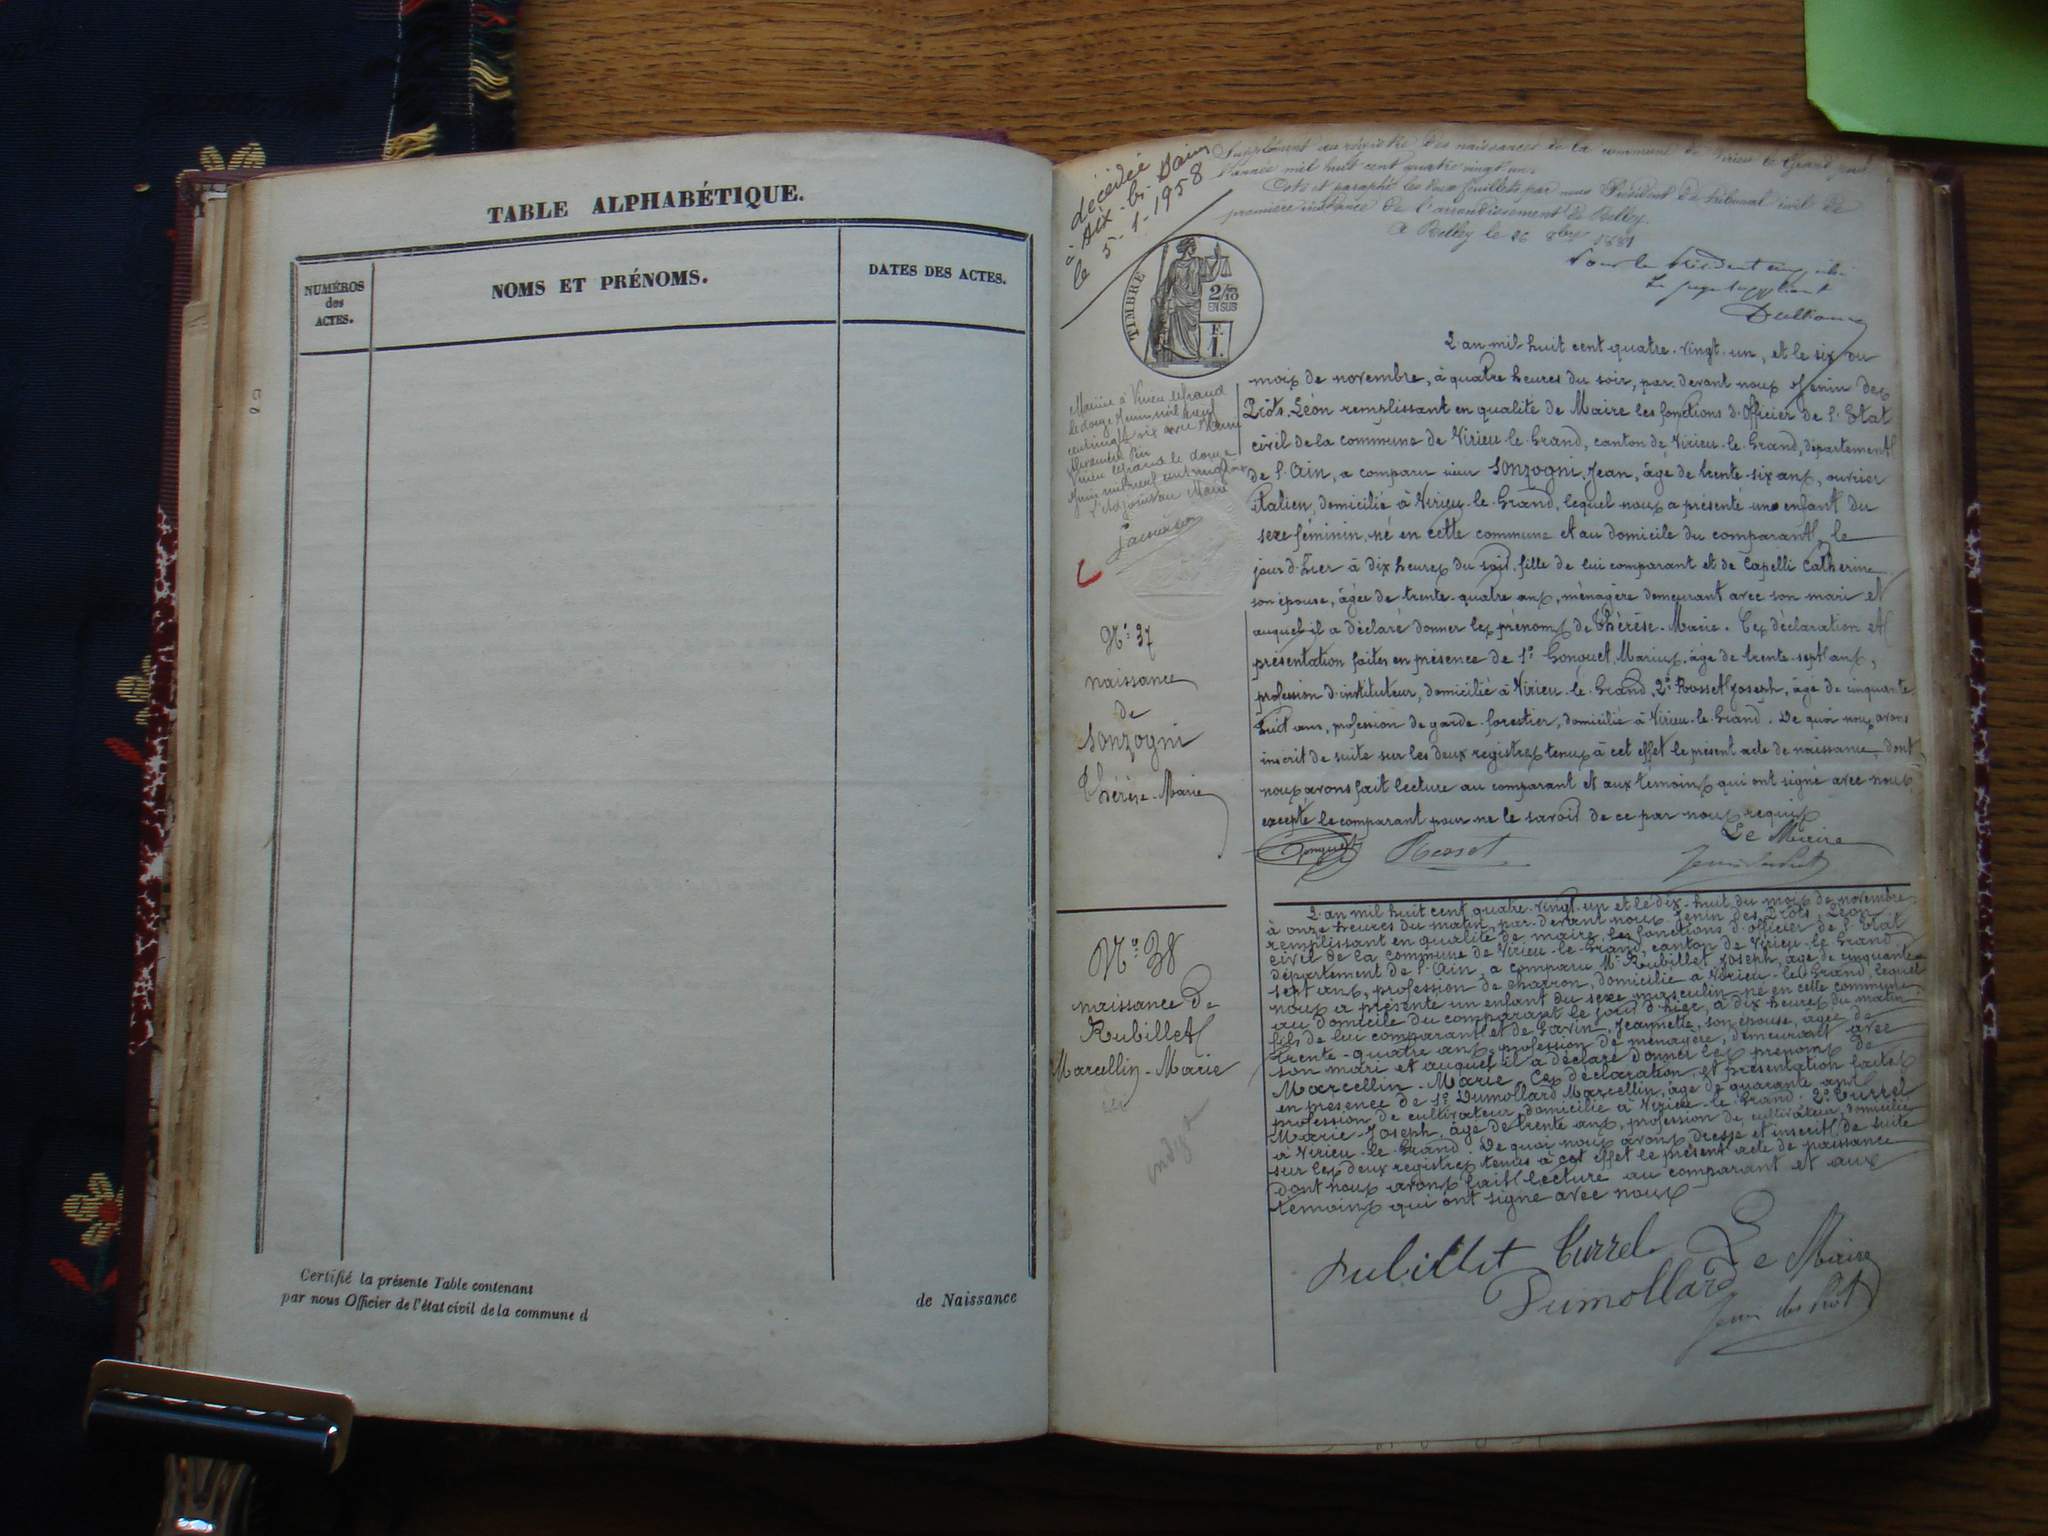 TABLE ALPHABÉTIQUE.
NUMÉROS
des
ACTES.
NOMS ET PRÉNOMS.
DATES DES ACTES.
Certifié la présente Table contenant
de Naissance
par nous Officier de l'état civil de la commune d
décédée
à Aix-les-Bains
le 5-1-1958
Supplément au registre des naissances de la commune de Virieu le Grand pour
l'année mil huit cent quatre vingt un.
Coté et paraphé les deux feuillets par nous Président du tribunal civil de
première instance de l'arrondissement de Belley.
A Belley le 26 8bre 1881
Pour le Président
Le juge suppléant
TIMBRE
2/10
EN SUS
F.
1.
L'an mil huit cent quatre-vingt-un, et le six du
mois de novembre, à quatre heures du soir, par devant nous Jenin des
Prôts, Léon remplissant en qualité de Maire les fonctions d'Officier de l'Etat
civil de la commune de Virieu-le-Grand, canton de Virieu-le-Grand, département
de l'Ain, a comparu sieur Sonzogni, Jean, âgé de trente-six ans, ouvrier
italien, domicilié à Virieu-le-Grand, lequel nous a présenté un enfant du
sexe féminin, né en cette commune et au domicile du comparant, le
jour d'hier à dix heures du soir, fille de lui comparant et de Capelli Catherine
son épouse, âgée de trente-quatre ans, ménagère demeurant avec son mari et
auquel il a déclaré donner les prénoms de Thérèse-Marie. Ces déclaration et
présentation faites en présence de 1° Gonguet, Marius, âgé de trente-sept ans,
profession d'instituteur, domicilié à Virieu-le-Grand, 2° Rosset Joseph, âgé de cinquante
huit ans, profession de garde-forestier, domicilié à Virieu-le-Grand. De quoi nous avons
inscrit de suite sur les deux registres tenus à cet effet le présent acte de naissance dont
nous avons fait lecture au comparant et aux témoins qui ont signé avec nous
excepté le comparant pour ne le savoir de ce par nous requis
Le Maire
Gonguet Rosset Jenin des Prôts
Mariée à Virieu le Grand
le douze Juin mil neuf
cent vingt six avec
Virieu le grand le douze
Juin mil neuf cent vingt six
L'Adjoint au Maire
N° 37
naissance
de
Sonzogni
Thérèse-Marie
L'an mil huit cent quatre-vingt-un et le dix-huit du mois de novembre
à onze heures du matin, par-devant nous Jenin des Prôts, Léon
remplissant en qualité de maire, les fonctions d'officier de l'Etat
civil de la commune de Virieu-le-Grand, canton de Virieu-le-Grand
département de l'Ain, a comparu Mr Rubillet Joseph, âgé de cinquante
sept ans, profession de charron, domicilié à Virieu-le-Grand, lequel
nous a présenté un enfant du sexe masculin né en cette commune
au domicile du comparant le jour d'hier, à dix heures du matin
fils de lui comparant et de Gavin, Jeannette, son épouse, âgée de
trente-quatre ans, profession de ménagère, demeurant avec
son mari et auquel il a déclaré donner les prénoms de
Marcellin-Marie. Ces déclaration et présentation faites
en présence de 1° Dumollard Marcellin, âgé de quarante ans
profession de cultivateur domicilié à Virieu-le-Grand. 2° Turrel
Marie-Joseph, âgé de trente ans, profession de cultivateur, domicilié
à Virieu-le-Grand. De quoi nous avons dressé et inscrit de suite
sur les deux registres tenus à cet effet le présent acte de naissance
dont nous avons fait lecture au comparant et aux
témoins qui ont signé avec nous
N° 38
naissance de
Rubillet
Marcellin-Marie
Rubillet Turrel Le Maire
Dumollard
Jenin des Prôts